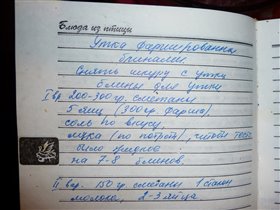 Блюда из птицы
Утка фаршированная
блинами
Снять шкуру с утки
Блины для утки
I вар. 200-300 гр. сметаны
5 яиц (300 гр. фарша)
соль по вкусу,
мука (по потреб), чтобы тесто
было жидкое
на 7-8 блинов.
II вар. 150 гр. сметаны 1 стакан
молока, 2-3 яйца